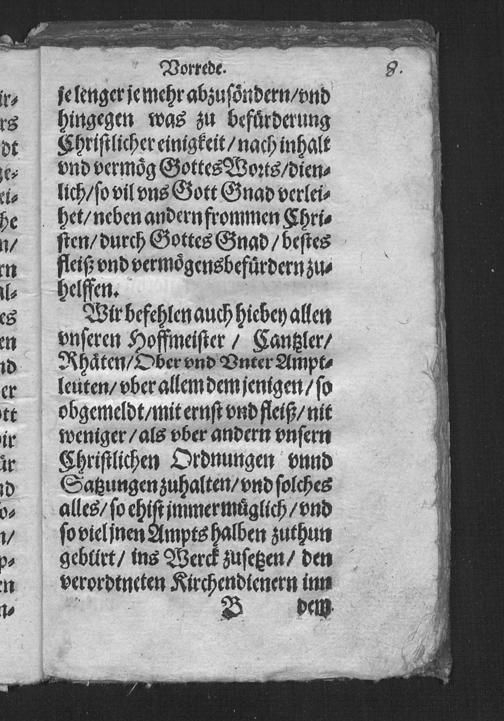 Vorrede. 8.
je lenger je mehr abzusöndern/vnd
hingegen was zu befürderung
Christlicher einigkeit/nach inhalt
vnd vermög Gottes Worts/dien-
lich/so vil vns Gott Gnad verlei-
het/neben andern frommen Chri-
sten/durch Gottes Gnad/bestes
fleiß vnd vermögens befürdern zu-
helffen.
Wir befehlen auch hiebey allen
vnseren Hoffmeister / Cantzler/
Rhäten/Ober vnd Vnter Ampt-
leüten/vber allem dem jenigen/so
obgemeldt/mit ernst vnd fleiß/nit
weniger/als vber andern vnsern
Christlichen Ordnungen vnnd
Satzungen zuhalten/vnd solches
alles/so ehist jmmer müglich/vnd
so viel jnen Ampts halben zuthun
gebürt/ins Werck zusetzen/den
verordtneten Kirchendienern inn
B dem